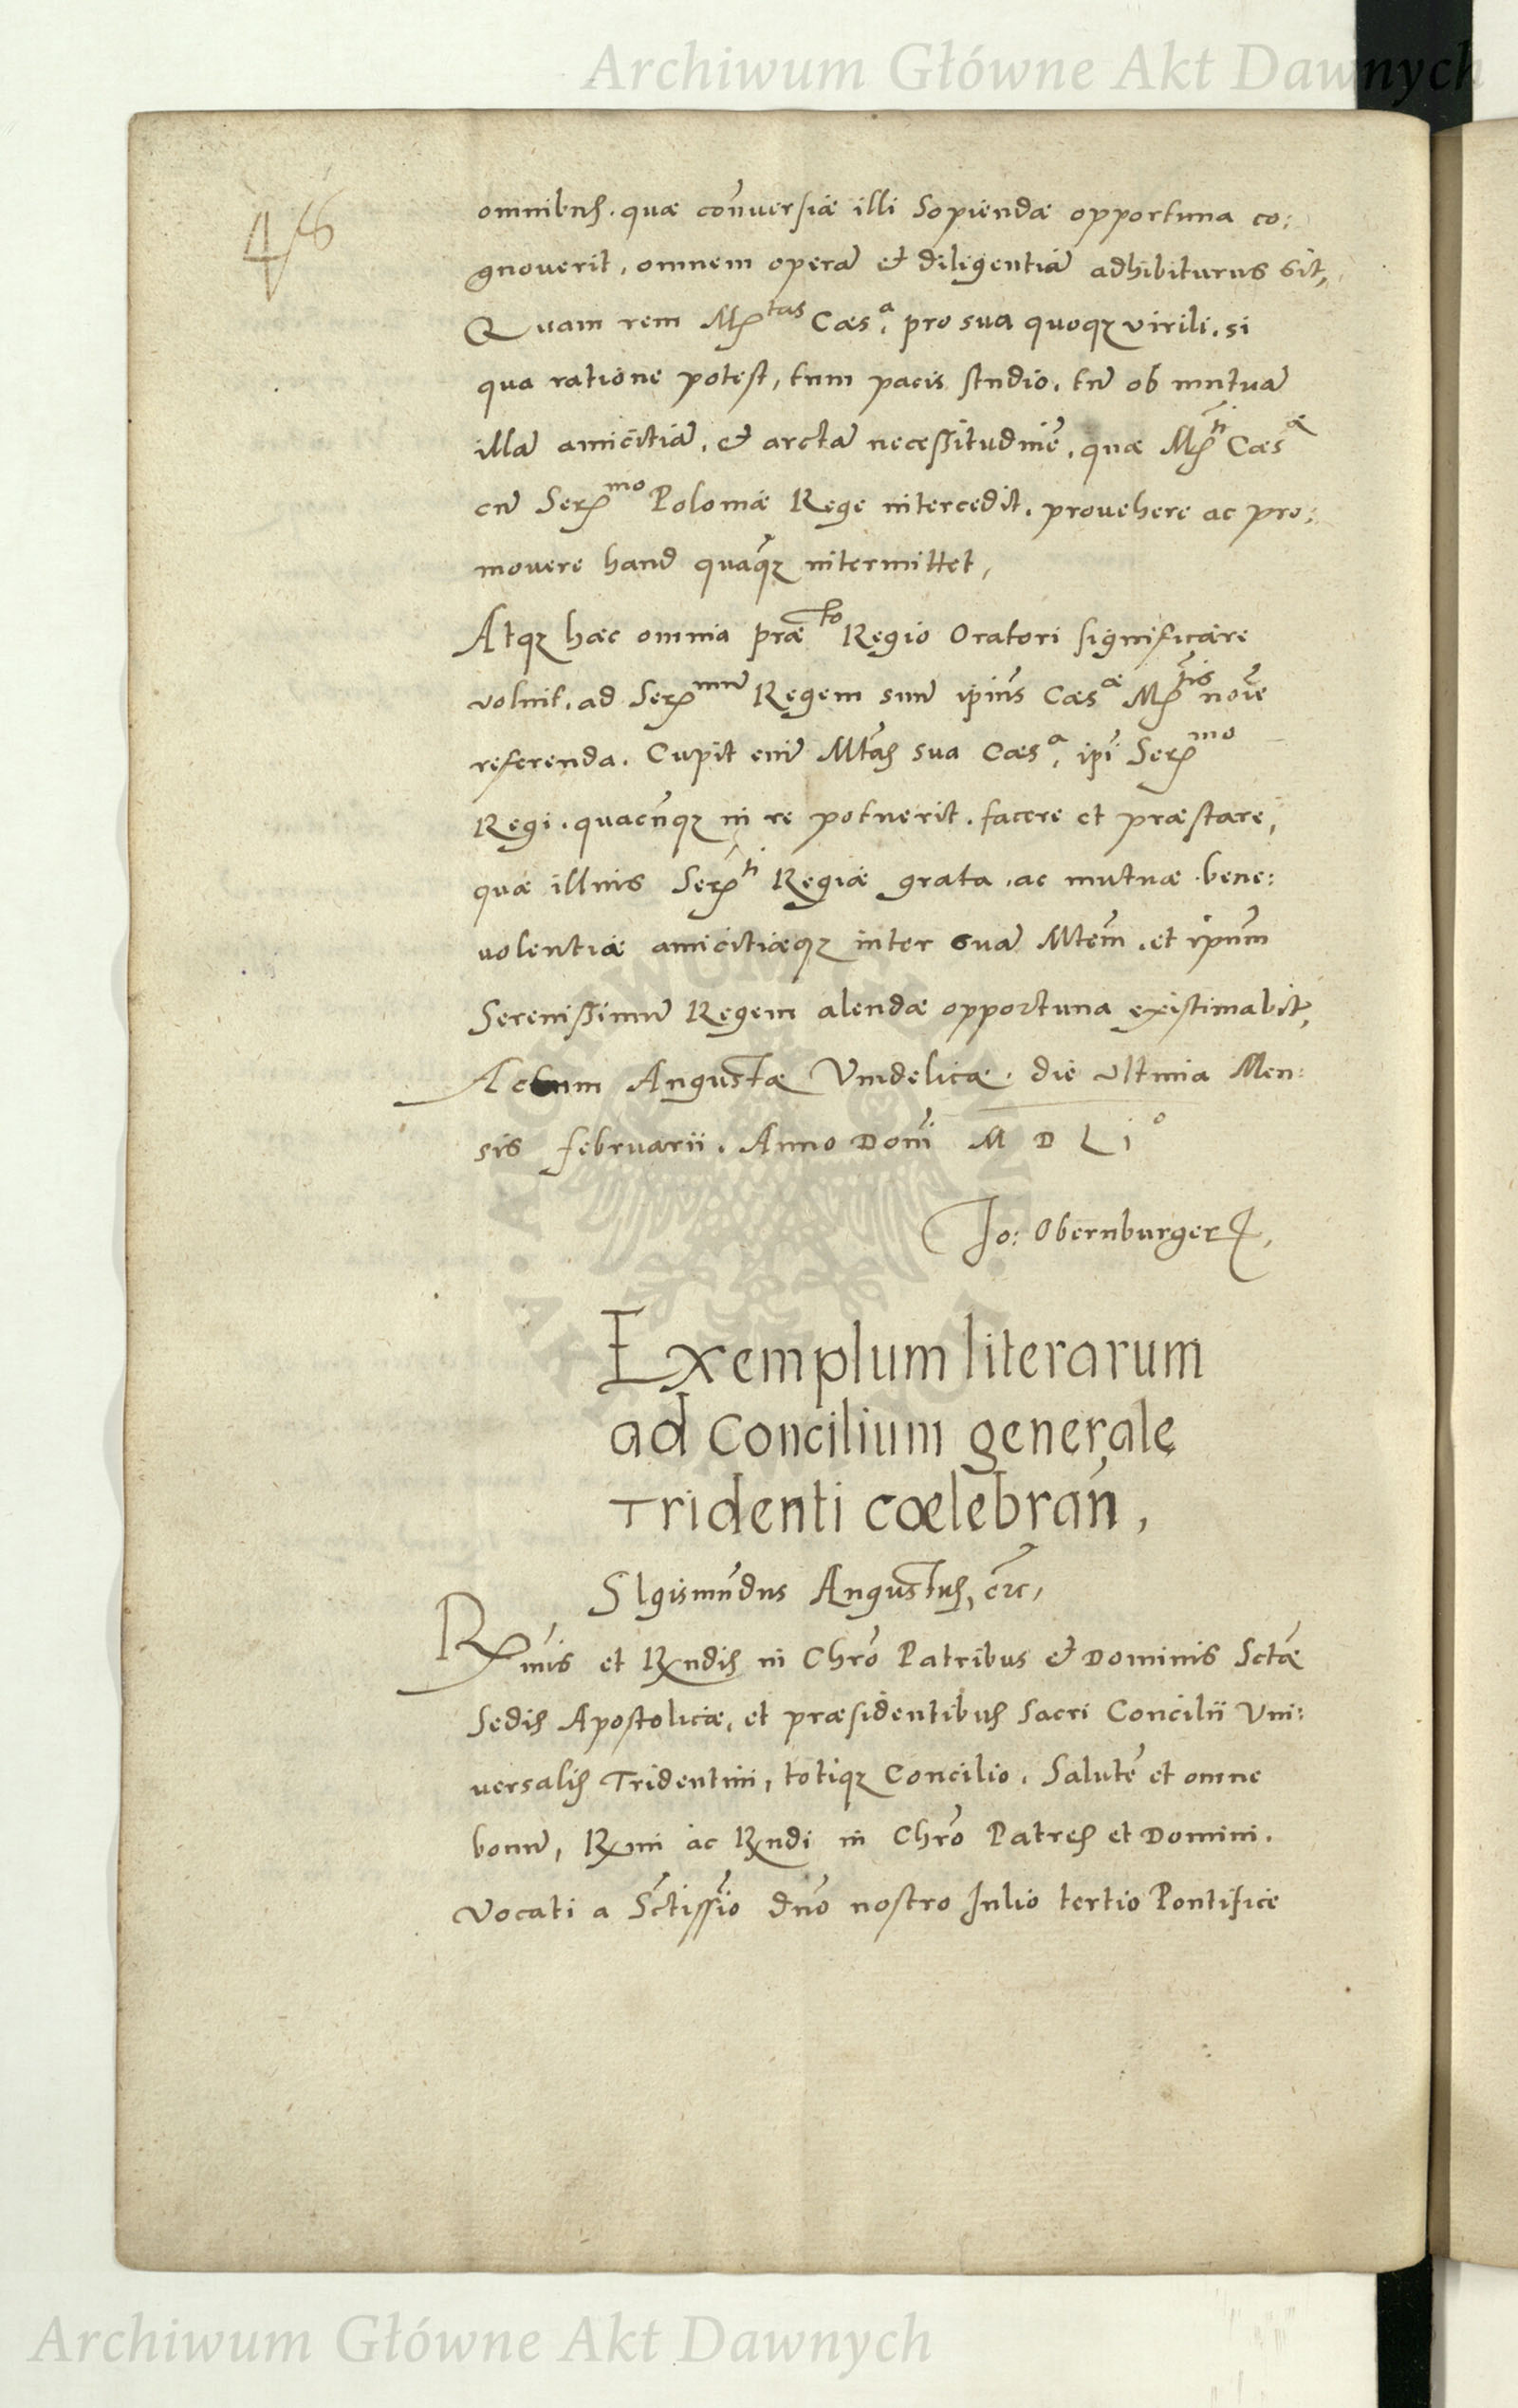 Archiwum Główne Akt Dawnych
46
omnibus. quæ cõnuersiæ illi Sopiendæ opportuna co:
gnouerit, omnem operã et diligentiã adhibiturus sit,
Quam rem Mtas Caesa. pro sua quoqz virili, si
qua ratione potest, tum pacis studio, tũ ob mutuã
illã amicitiã, et arctã necessitudinẽ, quæ Mti Caesæ
cũ Sermo Poloniæ Rege intercedit, prouehere ac pro:
mouere haud quaq̃z intermittet,
Atqz hæc omnia præto Regio Oratori significare
voluit, ad Sermũ Regem suũ ipius Caesæ Mtis noĩe
referenda. Cupit enĩ Mtas sua Caesa. ipi Sermo
Regi, quacũqz in re potuerit, facere et præstare,
quæ illius Serti Regiæ grata, ac mutuæ bene:
uolentiæ amicitiæqz inter suã Mtem, et ipum
Serenissimũ Regem alendæ opportuna existimabit,
Actum Augustæ Vindelicæ. die ultima Men:
sis februarii. Anno Doni M D L io
Jo: Obernburger
ARCHIWUM GŁÓWNE AKT DAWNYCH
Exemplum literarum
ad Concilium generale
Tridenti cœlebrañ,
SIgismũdus Augustus, etc,
Rmis et Rndis in Chro Patribus et Dominis Sctæ
Sedis Apostolicæ, et præsidentibus Sacri Concilii Vni:
uersalis Tridentini, totiqz Concilio. Salutẽ et omne
bonũ, Rmi ac Rndi in Chro Patres et Domini.
Vocati a Sctissĩo dño nostro Iulio tertio Pontifice
Archiwum Główne Akt Dawnych